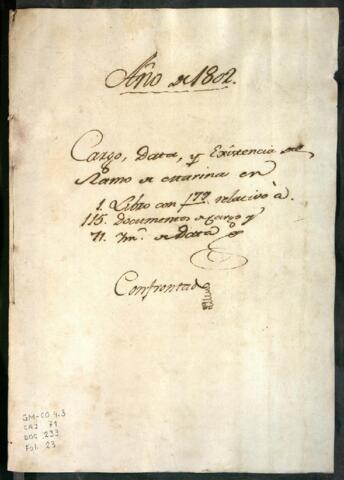 Año de 1802.
Cargo, Data, y Existencia del
Ramo de Marina en
1. Libro con f 79 relativo à
115. Documentos de cargo y
71. Ym.s de Data
Confrontado
GM-CO 4.3
CAJ 71
DOC 233
Fol. 23